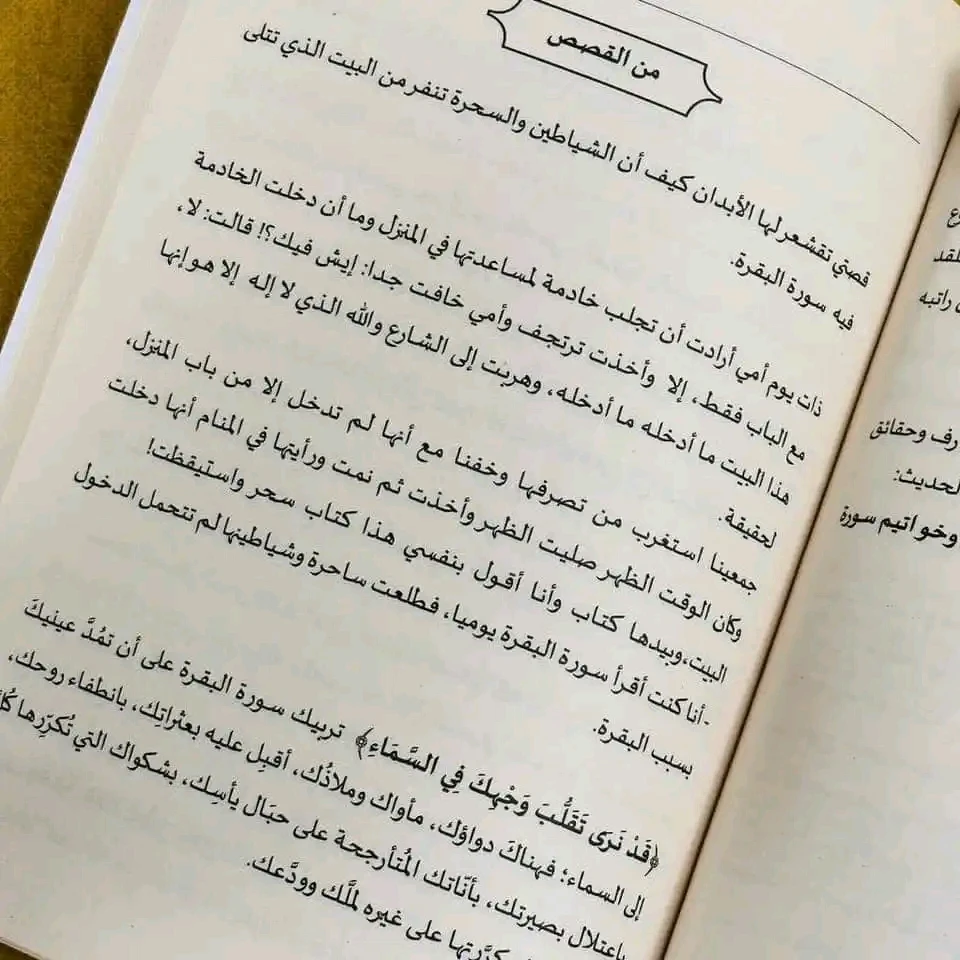 من القصص
قصتي تقشعر لها الأبدان كيف أن الشياطين والسحرة تنفر من البيت الذي تتلى
فيه سورة البقرة.
ذات يوم أمي أرادت أن تجلب خادمة لمساعدتها في المنزل وما أن دخلت الخادمة
مع الباب فقط، إلا وأخذت ترتجف وأمي خافت جدا: إيش فيك؟! قالت: لا،
هذا البيت ما أدخله ما أدخله، وهربت إلى الشارع والله الذي لا إله إلا هو إنها
لحقيقة.
جمعينا استغرب من تصرفها وخفنا مع أنها لم تدخل إلا من باب المنزل،
وكان الوقت الظهر صليت الظهر وأخذت ثم نمت ورأيتها في المنام أنها دخلت
البيت،وبيدها كتاب وأنا أقول بنفسي هذا كتاب سحر واستيقظت!
-أنا كنت أقرأ سورة البقرة يوميا، فطلعت ساحرة وشياطينها لم تتحمل الدخول
بسبب البقرة.
﴿قَدْ نَرَى تَقَلُّبَ وَجْهِكَ فِي السَّمَاءِ﴾ تربيك سورة البقرة على أن تمُدَّ عينيكَ
إلى السماء؛ فهناكَ دواؤك، مأواك وملاذُك، أقبِل عليه بعثراتِك، بانطفاء روحك،
باعتلال بصيرتك، بأنّاتك المُتأرجحة على حبَال يأسِك، بشكواك التي تُكرّرها
كرَّرتها على غيره لملَّك وودَّعك.
ع
لقد
راتبه
رف وحقائق
لحديث:
وخواتيم سورة